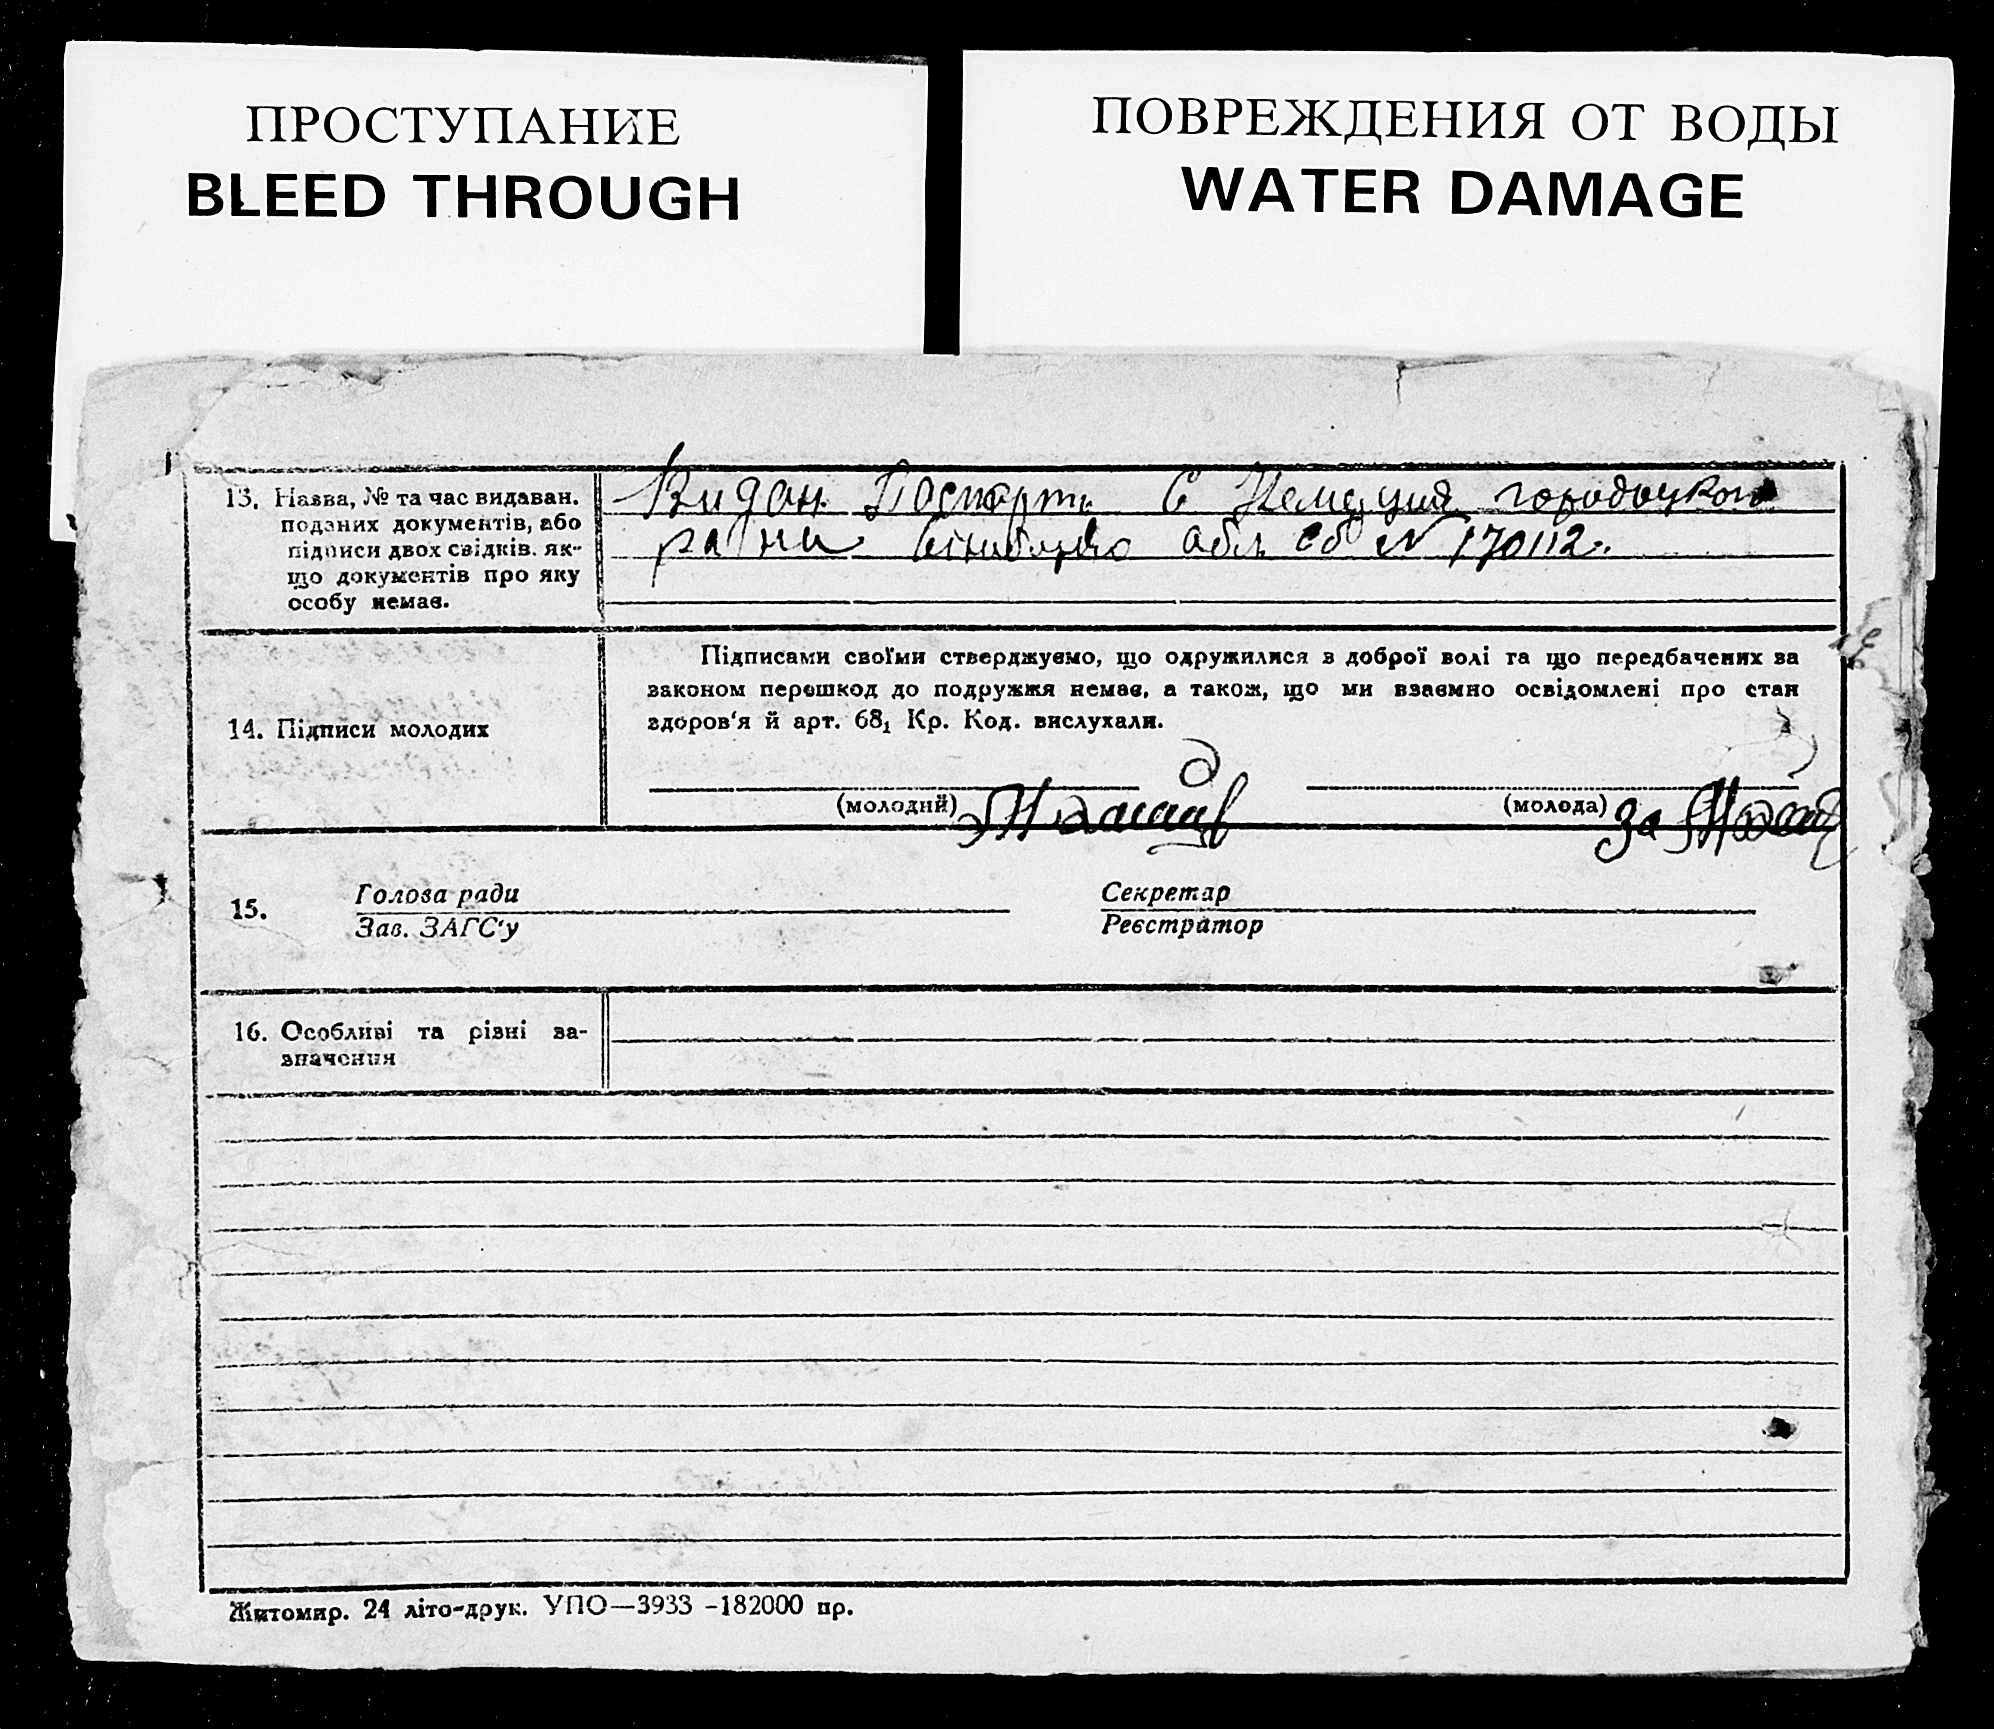 ПРОСТУПАНИЕ
BLEED THROUGH
ПОВРЕЖДЕНИЯ ОТ ВОДЫ
WATER DAMAGE
13. Назва, № та час видаван.
поданих документів, або
підписи двох свідків. як-
що документів про яку
особу немає.
Видан Паспорть С
обл сб № 170112.
14. Підписи молодих
Підписами своїми стверджуємо, що одружилися з доброї волі та що передбачених за
законом перешкод до подружжя немає, а також, що ми взаємно освідомлені про стан
здоров'я й арт. 68₁ Кр. Код. вислухали.
(молодий)
(молода) за
15.
Голова ради
Зав. ЗАГС'у
Секретар
Реєстратор
16. Особливі та різні за-
значення
Житомир. 24 літо-друк. УПО—3933 -182000 пр.